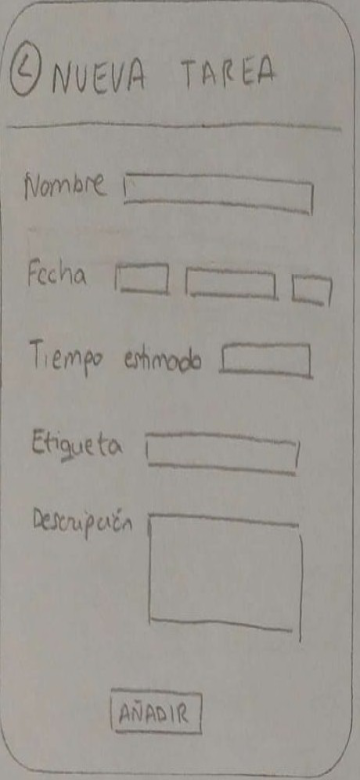 NUEVA TAREA
Nombre
Fecha
Tiempo estimado
Etiqueta
Descripción
AÑADIR